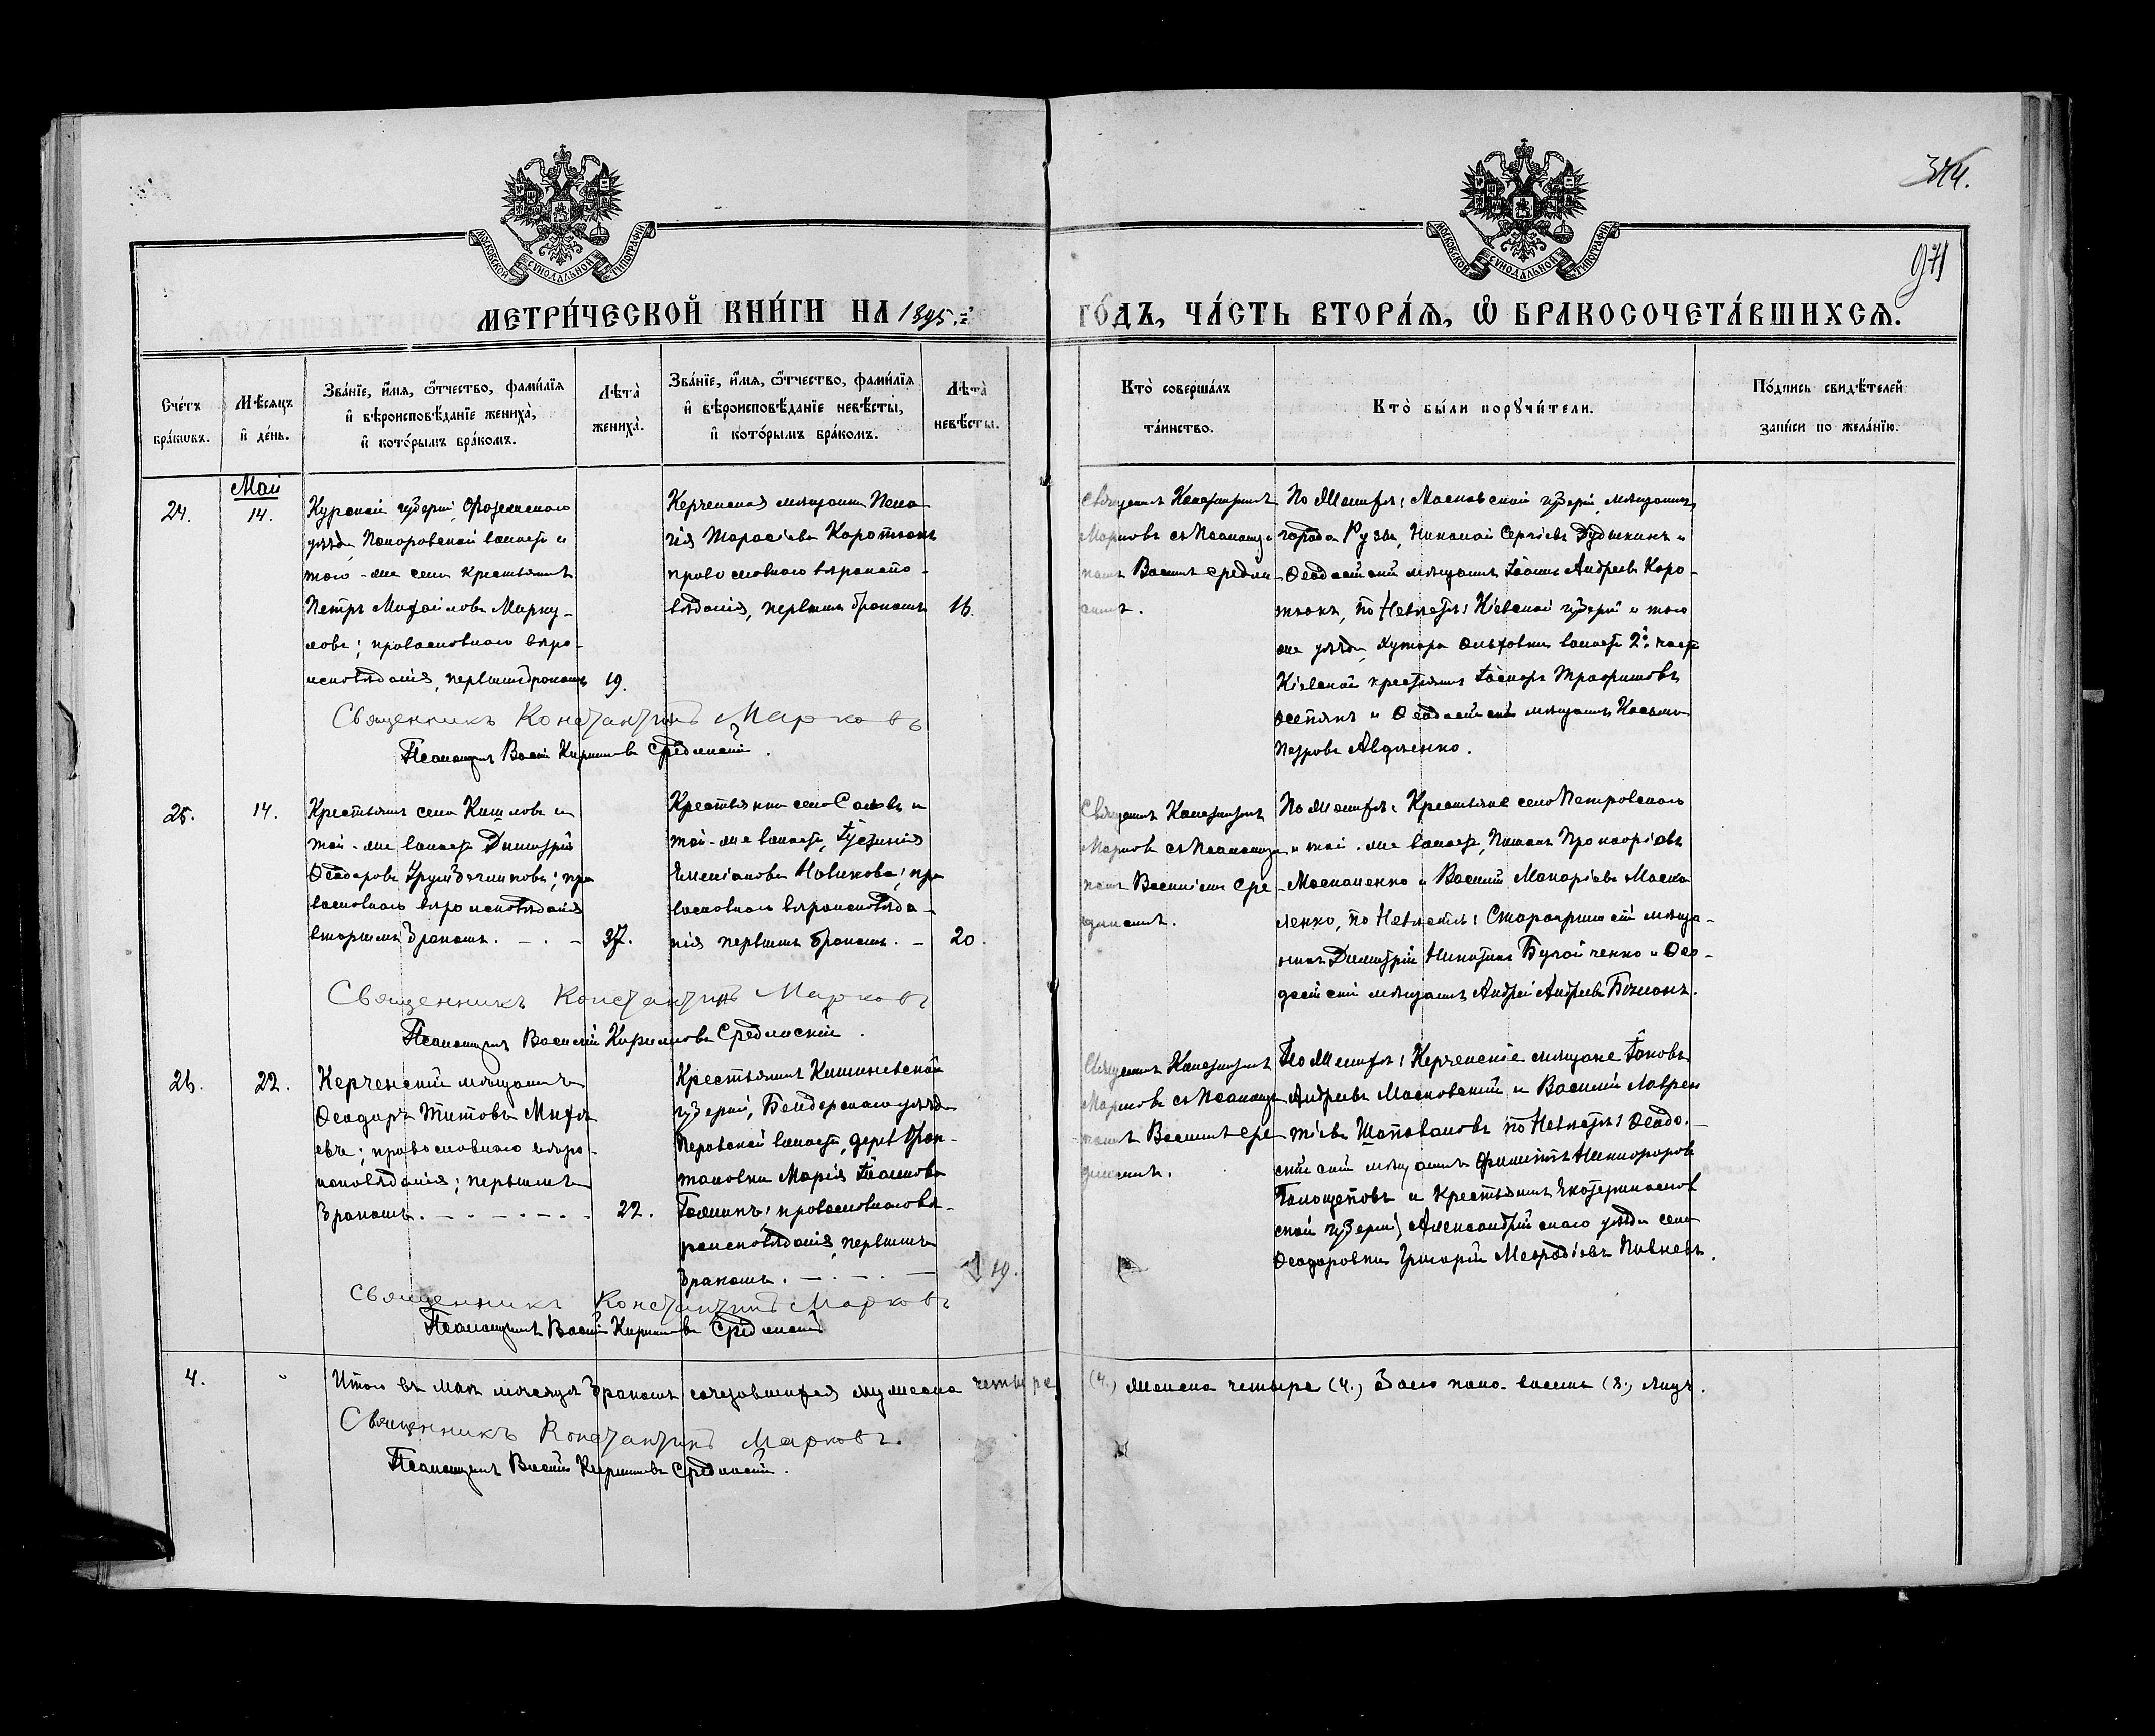 344.
971
МОСКОВСКОЙ СѴНОДАЛЬНОЙ ТИПОГРАФІИ
МОСКОВСКОЙ СѴНОДАЛЬНОЙ ТИПОГРАФІИ
МЕТРИ́ЧЕСКОЙ КНИ́ГИ НА 1895.
ГО́ДЪ, ЧА́СТЬ ВТОРА́Ѧ, Ѽ БРАКОСОЧЕТА́ВШИХСѦ.
Сче́тъ
бра́кѡвъ.
Мѣ́сяцъ
и҆ де́нь.
Зва́нїе, и҆́мѧ, ѻ҆́тчество, фами́лїѧ
и҆ вѣроисповѣ́данїе жениха̀,
и҆ кото́рымъ бра́комъ.
Лѣта̀
жениха̀.
Зва́нїе, и҆́мѧ, ѻ҆́тчество, фами́лїѧ
и҆ вѣроисповѣ́данїе невѣ́сты,
и҆ кото́рымъ бра́комъ.
Лѣта̀
невѣ́сты.
Кто̀ соверша́лъ
та́инство.
Кто̀ бы́ли порꙋчи́тели.
По́дпись свидѣ́телей
за́писи по жела́нїю.
Май
24.
14.
Курской губерніи,
уѣзда волости и
того-же села крестьянинъ
Петръ Михайловъ Марку-
ловъ; православнаго вѣро-
исповѣданія, первымъ бракомъ
19.
Керченская мѣщанка Пела-
гія Тарасіева Коротюкъ
православнаго вѣроиспо-
вѣданія, первымъ бракомъ
16.
Священникъ Константинъ
Марковъ съ Псаломщи-
комъ Василіемъ Средин-
скимъ.
По Женихѣ: Московской губерніи, мѣщанинъ
города Рузы, Николай Сергіевъ Дудыкинъ и
Ѳеодосійскій мѣщанинъ Іоаннъ Андреевъ Коро-
тюкъ, по Невѣстѣ: Кіевской губерніи и того
же уѣзда, хутора Ольховки волости 2й части
Кіевской крестьянинъ Трофимовъ
и Ѳеодосійскій мѣщанинъ Косьма
Петровъ Авдѣенко.
Священникъ Константинъ Марковъ
Псаломщикъ Василій Кирилловъ Срединскій.
25.
14.
Крестьянинъ села и
той-же волости Димитрій
Ѳеодоровъ; пра-
вославнаго вѣроисповѣданія
вторымъ бракомъ.
37.
Крестьянка села и
той-же волости, Іустинія
Емеліанова Новикова; пра-
вославнаго вѣроисповѣда-
нія первымъ бракомъ.
20.
Священникъ Константинъ
Марковъ съ Псаломщи-
комъ Василіемъ Сре-
динскимъ.
По Женихѣ: Крестьяне села Петровскаго
и той-же волости, Прокофіевъ
Москаленко и Василій Макаріевъ Моска-
ленко, по Невѣстѣ: Старокрымскій мѣща-
нинъ Димитрій Никитинъ и Ѳео-
досійскій мѣщанинъ Андрей Андреевъ
Священникъ Константинъ Марковъ
Псаломщикъ Василій Кирилловъ Срединскій.
26.
22.
Керченскій мѣщанинъ
Ѳеодоръ Титовъ Михѣ-
евъ; православнаго вѣро-
исповѣданія; первымъ
бракомъ.
22.
Крестьянка Кишиневской
губерніи, Бендерскаго уѣзда
волости, дер.
Марія
православнаго вѣ-
роисповѣданія, первымъ
бракомъ.
19.
Священникъ Константинъ
Марковъ съ Псаломщи-
комъ Василіемъ Сре-
динскимъ.
По Женихѣ: Керченскіе мѣщане Іаковъ
Андреевъ Московскій и Василій Лаврен-
тіевъ Шаповаловъ по Невѣстѣ: Ѳеодо-
сійскій мѣщанинъ Филиппъ Никифоровъ
и Крестьянинъ Екатеринослав-
ской губерніи, Александрійскаго уѣзда села
Ѳеодоровки Григорій Меѳодіевъ
Священникъ Константинъ Марковъ
Псаломщикъ Василій Кирилловъ Срединскій
4.
Итого въ Маѣ мѣсяцѣ бракомъ сочетавшихся мужеска четыре
(4.) женска четыре (4.) Всего пола восемь (8.) лицъ.
Священникъ Константинъ Марковъ.
Псаломщикъ Василій Кирилловъ Срединскій.